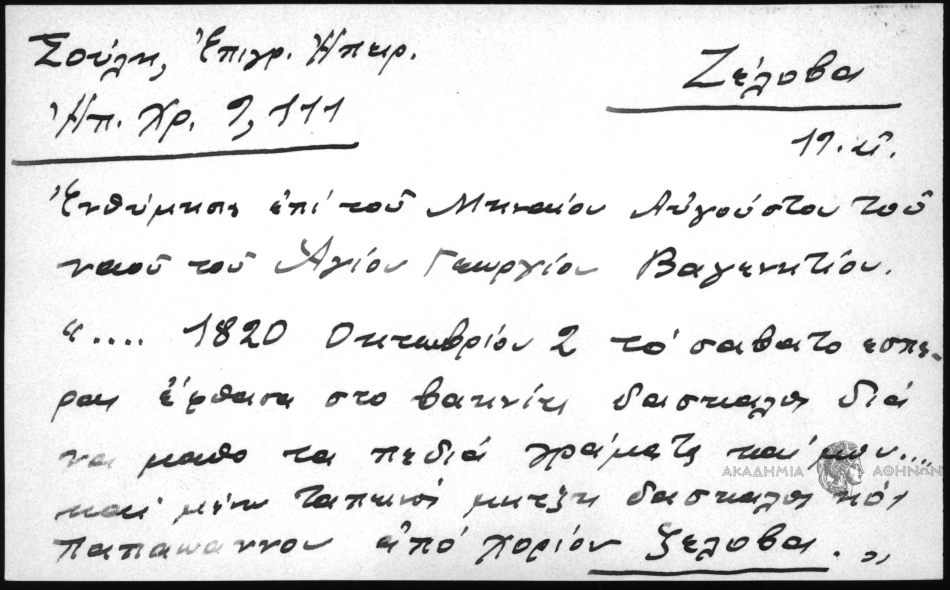 Σούλη, Ἐπιγρ. Ἠπειρ.
Ἠπ. Χρ. 9, 111
Ζέλοβα
19. αἰ.
Ἐνθύμησις ἐπί τοῦ Μηναίου Αὐγούστου τοῦ
ναοῦ τοῦ Ἁγίου Γεωργίου Βαγενητίου.
".... 1820 Οκτωβρίου 2 το σαβατο εσπε-
ρας ἔφθασα στο δασκαλος διά
να μαθο τα πεδιά γράματα και
και ταπεινοί δασκαλος
Παπαιωαννου ἀπό χορίον ζελοβα."
ΑΚΑΔΗΜΙΑ ΑΘΗΝΩΝ